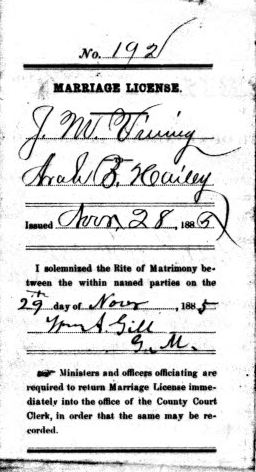 No. 192
MARRIAGE LICENSE.
J. M. Vining
Arah F. Hailey
Issued Nov 28, 1885
I solemnized the Rite of Matrimony be-
tween the within named parties on the
29th day of Novr, 1885
Wm A Gill
G. M.
☞ Ministers and officers officiating are
required to return Marriage License imme-
diately into the office of the County Court
Clerk, in order that the same may be re-
corded.